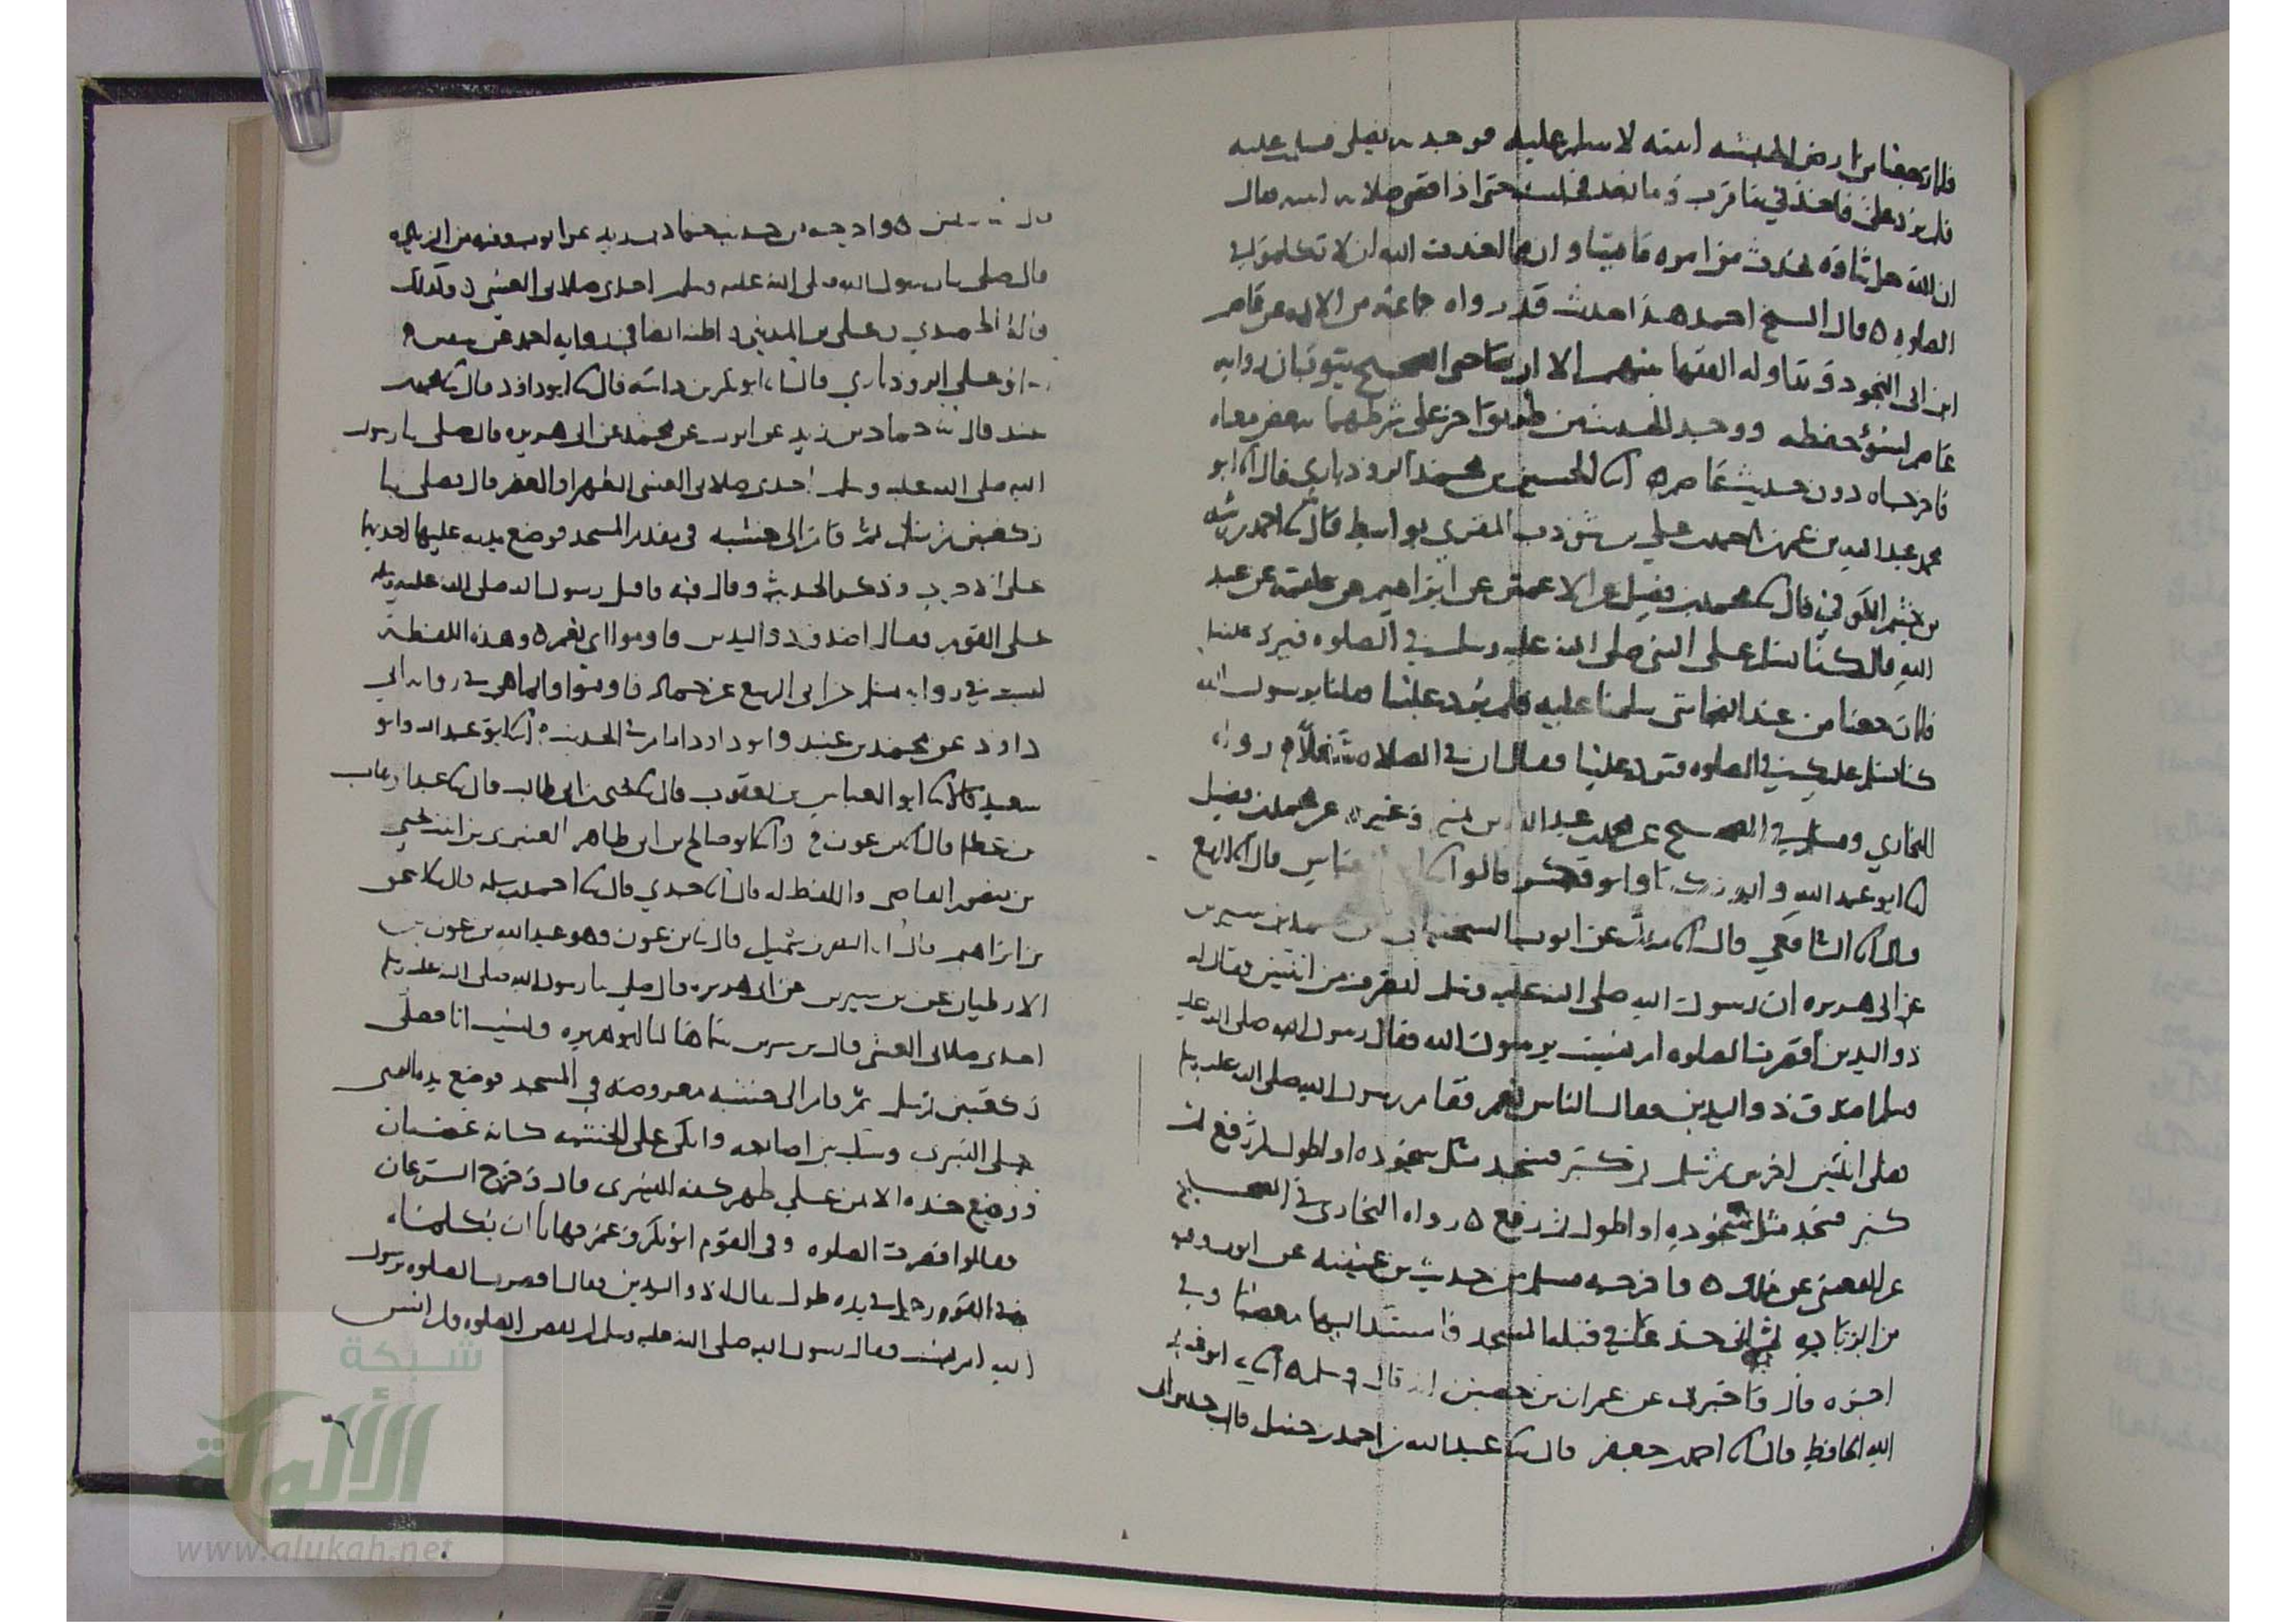 فلما رجعنا من ارض الحبشه اتيته لاسلم عليه فوجدته يصلي فسلمت عليه
فلم يرد علي فاخذني ما قرب وما بعد فجلست حتى اذا قضى صلاته اتيته فقال
ان الله يحدث من امره ما يشا وان مما احدث الله ان لا تكلموا في
الصلوه ٥ قال الشيخ احمد هذا حديث قد رواه جماعه من الايمه عن عاصم
ابن ابي النجود وتداوله الفقها بينهم الا ان صاحبي الصحيح يتوقيان روايه
عاصم لسوء حفظه ووجد الحديث من طريق اخر على شرطهما ببعض معناه
فاخرجاه دون حديث عاصم ٥ انا الحسين بن محمد الروذباري قال انا ابو
محمد عبد الله بن عمر بن احمد بن علي بن شوذب المقري بواسط قال نا احمد بن رشد
بن خثيم الكوفي قال نا محمد بن فضيل عن الاعمش عن ابراهيم عن علقمه عن عبد
الله قال كنا نسلم على النبي صلى الله عليه وسلم في الصلوه فيرد علينا
فلما رجعنا من عند النجاشي سلمنا عليه فلم يرد علينا فقلنا يرسول الله
كنا نسلم عليك في الصلوه فترد علينا فقال ان في الصلاه شغلا رواه
البخاري ومسلم في الصحيح عن محمد بن عبد الله بن نمير وغيره عن محمد بن فضيل
انا ابو عبد الله وابو زكريا وابو بكر قالوا نا ابو العباس قال انا الربيع
قال انا الشافعي قال انا ملك عن ايوب السختياني عن محمد بن سيرين
عن ابي هريره ان رسول الله صلى الله عليه وسلم انصرف من اثنتين فقال له
ذو اليدين اقصرت الصلوه ام نسيت يرسول الله فقال رسول الله صلى الله عليه
وسلم اصدق ذو اليدين فقال الناس نعم فقام رسول الله صلى الله عليه وسلم
فصلى اثنتين اخريين ثم سلم ثم كبر فسجد مثل سجوده او اطول ثم رفع ثم
كبر فسجد مثل سجوده او اطول ثم رفع ٥ رواه البخاري في الصحيح
عن القعنبي عن ملك ٥ واخرجه مسلم من حديث بن عيينه عن ايوب وفيه
من الزياده ثم اتى جذعا في قبله المسجد فاستند اليها مغضبا وفي
اخره قال واخبرت عن عمران بن حصين انه قال وسلم ٥ انا ابو عبد
الله الحافظ قال نا احمد بن جعفر قال نا عبد الله بن احمد بن حنبل قال حدثني ابي
قال ٥ واخرجه من حديث حماد بن زيد عن ايوب وفيه من الزياده
قال صلى بنا رسول الله صلى الله عليه وسلم احدى صلاتي العشي وكذلك
قاله الحميدي وعلي بن المديني ايضا في روايه احمد عن سفين
علي الروذباري قال انا ابو بكر بن داسه قال نا ابو داود قال نا محمد
بن عبيد قال نا حماد بن زيد عن ايوب عن محمد عن ابي هريره قال صلى بنا رسول
الله صلى الله عليه وسلم احدى صلاتي العشي الظهر او العصر قال فصلى بنا
ركعتين ثم سلم ثم قام الى خشبه في مقدم المسجد فوضع يديه عليها احديهما
على الاخرى وذكر الحديث وقال فيه فاقبل رسول الله صلى الله عليه وسلم
على القوم فقال اصدق ذو اليدين فاوموا اي نعم ٥ وهذه اللفظة
ليست في روايه مسلم عن ابي الربيع عن حماد فاوموا وانما هي في روايه ابي
داود عن محمد بن عبيد وابو داود امام في الحديث ٥ انا ابو عبد الله وابو
سعيد قالا نا ابو العباس بن يعقوب قال نا يحيى بن ابي طالب قال نا عبد الوهاب
بن عطا قال انا بن عون ح وانا ابو صالح بن ابي طاهر العنبري بن ابنت يحيى
بن منصور القاضي واللفظ له قال نا جدي قال نا احمد بن سلمه قال نا اسحق
بن ابراهيم قال انا النضر بن شميل قال نا بن عون وهو عبد الله بن عون بن
الارطبان عن بن سيرين عن ابي هريره قال صلى بنا رسول الله صلى الله عليه وسلم
احدى صلاتي العشي قال بن سيرين سماها لنا ابو هريره ونسيت انا فصلى
ركعتين ثم سلم ثم قام الى خشبه معروضه في المسجد فوضع يده اليمنى
على اليسرى وشبك بين اصابعه واتكى على الخشبه كانه غضبان
ووضع خده الايمن على ظهر كفه اليسرى قال وخرج السرعان
فقالوا قصرت الصلوه وفي القوم ابو بكر وعمر فهابا ان يكلماه
وفي القوم رجل في يده طول يقال له ذو اليدين فقال اقصرت الصلوه يرسول
الله ام نسيت فقال رسول الله صلى الله عليه وسلم لم تقصر الصلوه ولم انس
٦
شبكة
الألوكة
www.alukah.net